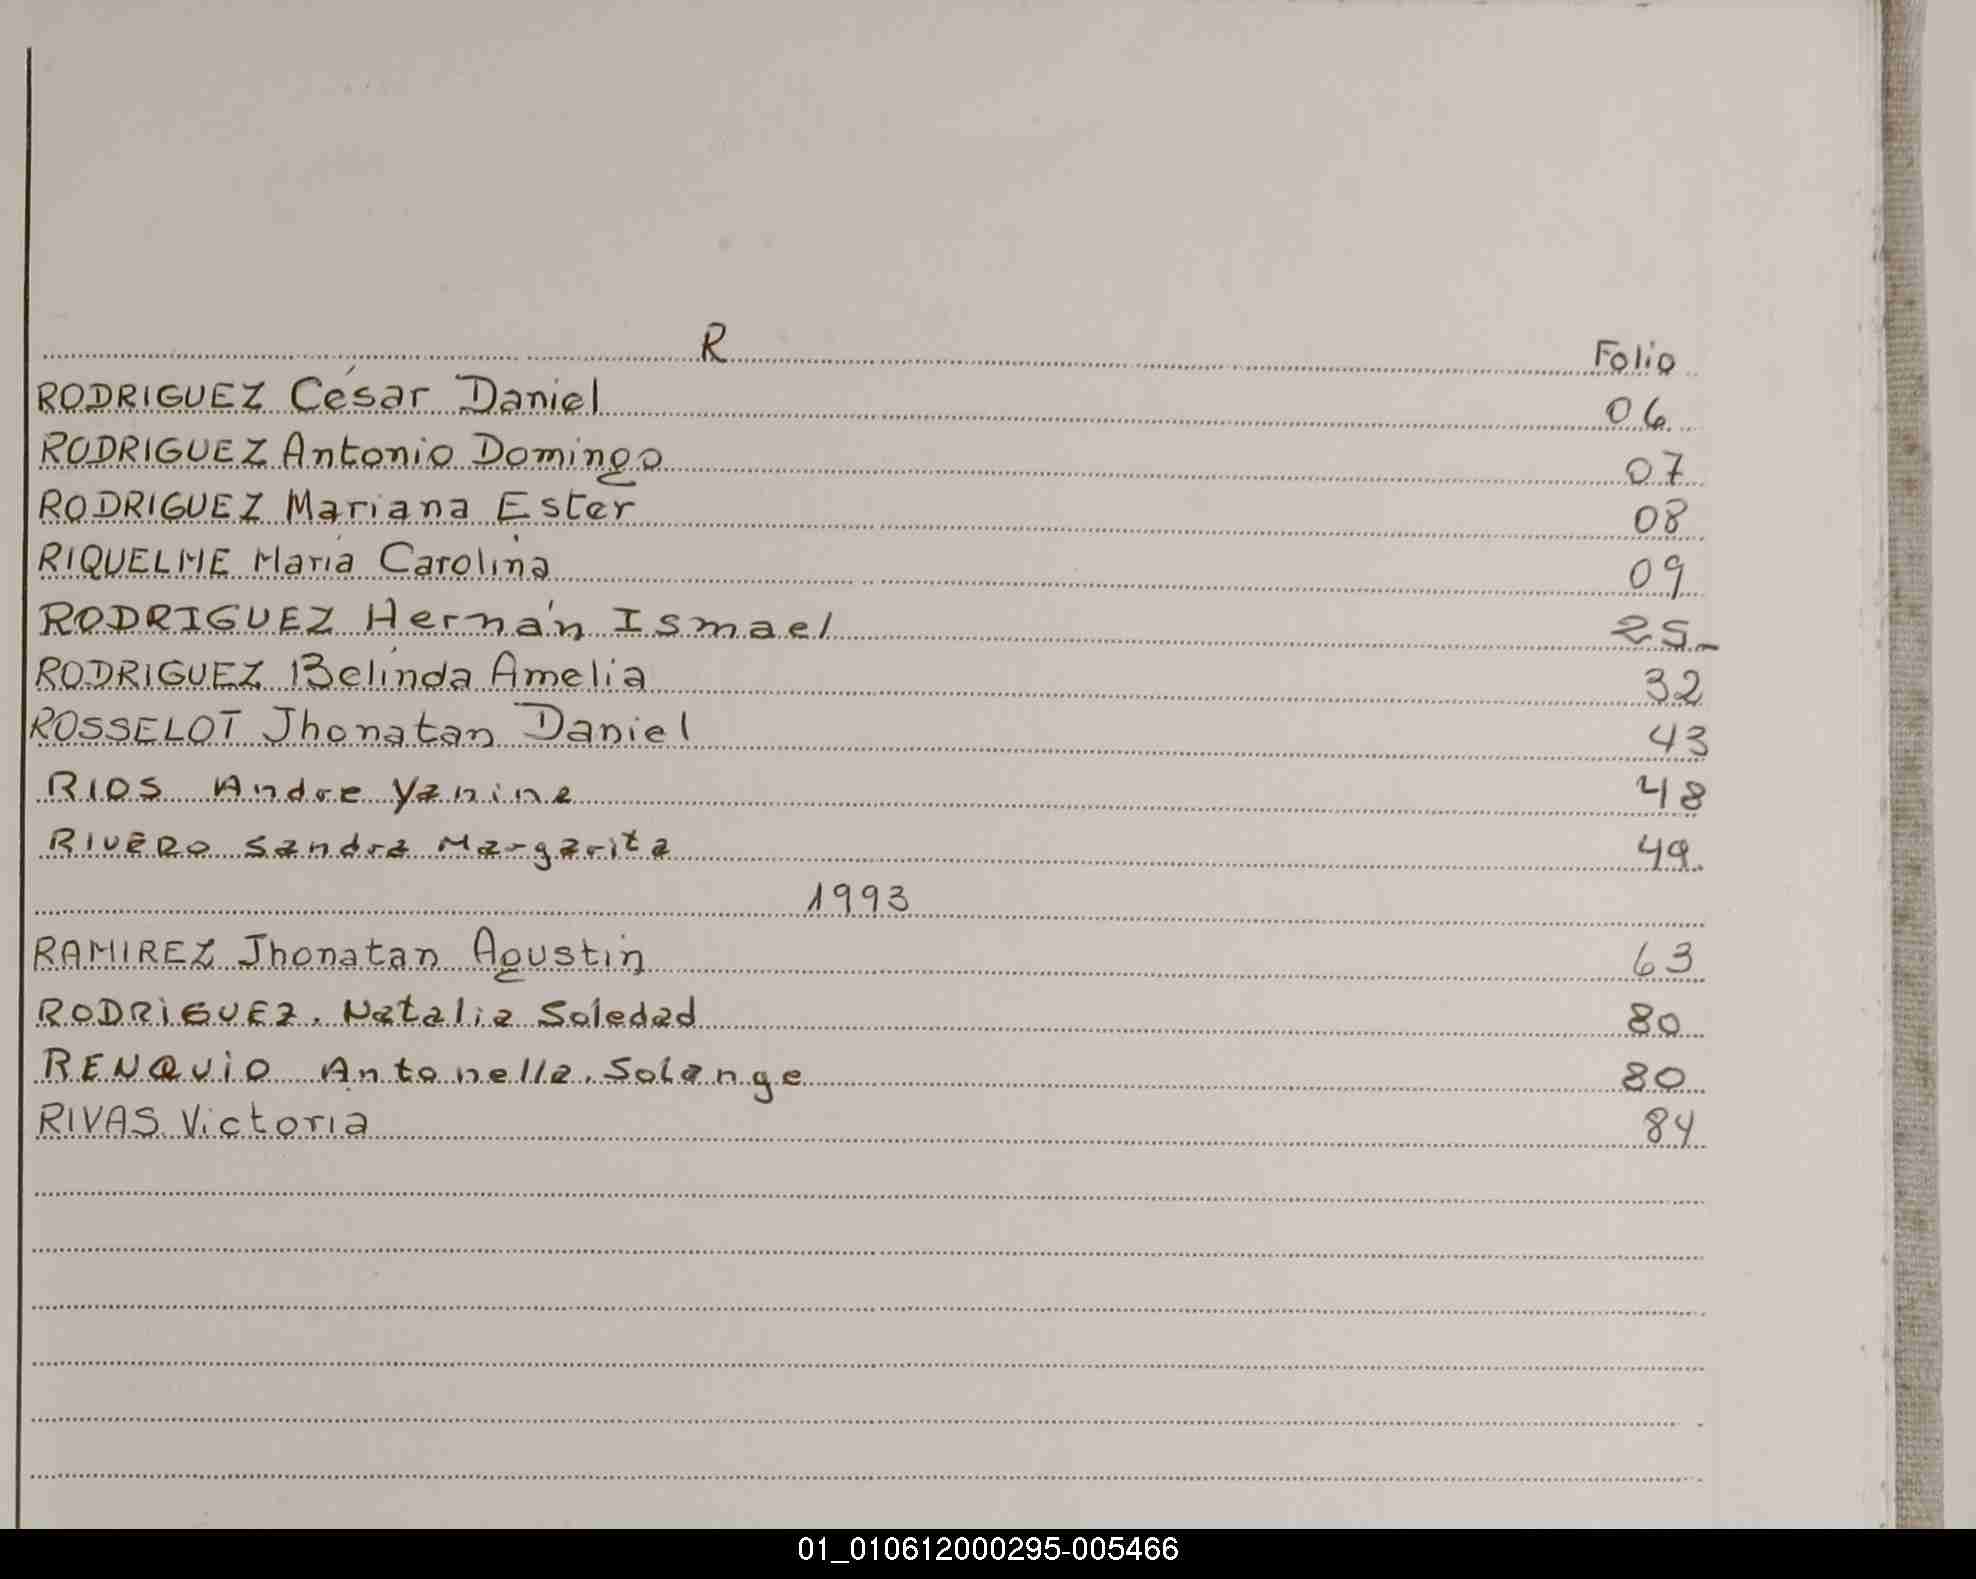 R Folio
RODRIGUEZ César Daniel 06
RODRIGUEZ Antonio Domingo 07
RODRIGUEZ Mariana Ester 08
RIQUELME María Carolina 09
RODRIGUEZ Hernán Ismael 25
RODRIGUEZ Belinda Amelia 32
ROSSELOT Jhonatan Daniel 43
RIOS Andre Yanine 48
RIVERO Sandra Margarita 49
1993
RAMIREZ Jhonatan Agustin 63
RODRIGUEZ. Natalia Soledad 80
RENQUIO Antonella Solange 80
RIVAS Victoria 84
01_010612000295-005466